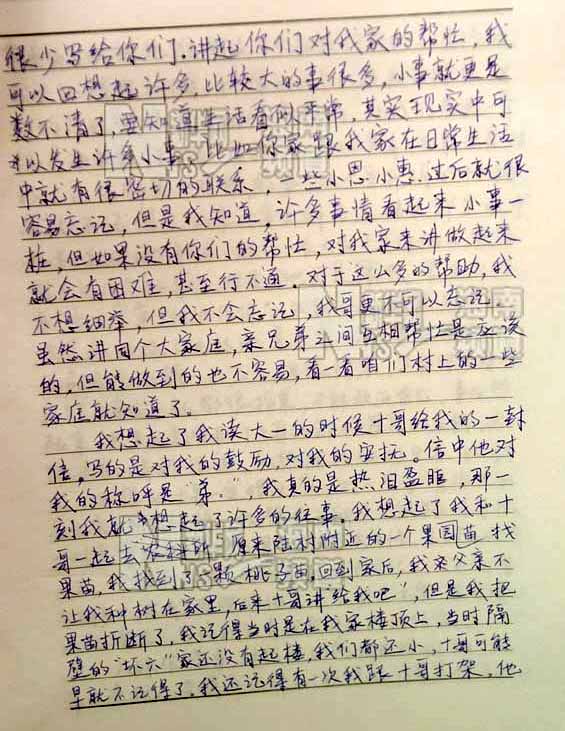 很少写给你们.讲起你们对我家的帮忙,我
可以回想起许多,比较大的事很多,小事就更是
数不清了,要知道生活看似平常,其实现实中可
以发生许多小事,比如你家跟我家在日常生活
中就有很密切的联系,一些小恩小惠,过后就很
容易忘记,但是我知道,许多事情看起来小事一
桩,但如果没有你们的帮忙,对我家来讲做起来
就会有困难,甚至行不通.对于这么多的帮助,我
不想细举,但我不会忘记,我哥更不可以忘记.
虽然讲同个大家庭,亲兄弟之间互相帮忙是应该
的,但能做到的也不容易,看一看咱们村上的一些
家庭就知道了.
我想起了我读大一的时候十哥给我的一封
信,写的是对我的鼓励,对我的安抚。信中他对
我的称呼是"弟",我真的是热泪盈眶,那一
刻我就想起了许多的往事.我想起了我和十
哥一起去农科所,原来陆村附近的一个果园苗找
果苗,我找到了一颗桃子苗,回到家后,我亲父亲不
让我种树在家里,后来十哥讲给我吧",但是我把
果苗折断了,我记得当时是在我家楼顶上,当时隔
壁的"坏六"家还没有起楼,我们都还小,十哥可能
早就不记得了,我还记得有一次我跟十哥打架,他